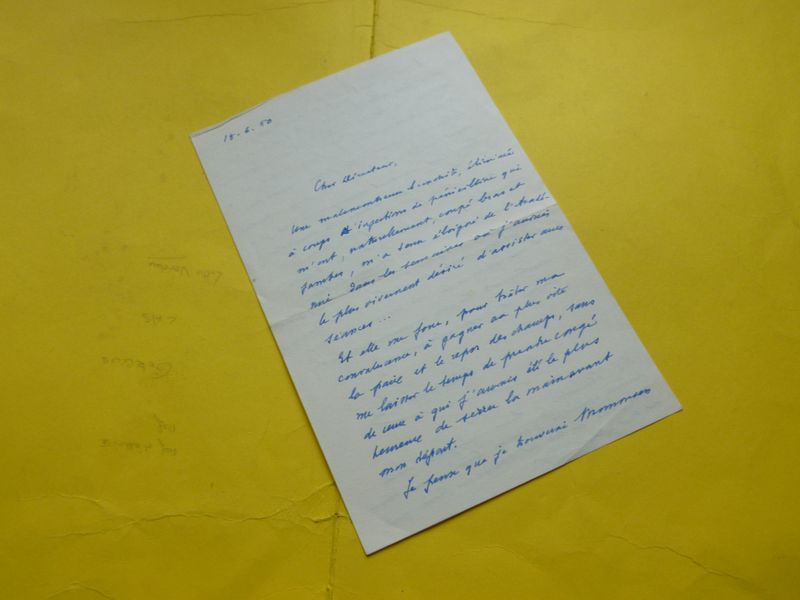 18-6-50
Cher Directeur,
Une malencontreuse
à coups d'injections de pénicilline qui
m'ont, naturellement, coupé bras et
jambes, m'a tenu éloigné de l'
dans les semaines où j'aurais
le plus vivement désiré d'assister aux
séances...
Et elle me force, pour hâter ma
convalescence, à gagner au plus vite
la paix et le repos des champs, sans
me laisser le temps de prendre congé
de ceux à qui j'aurais été le plus
heureux de serrer la main avant
mon départ.
Je pense que je trouverai